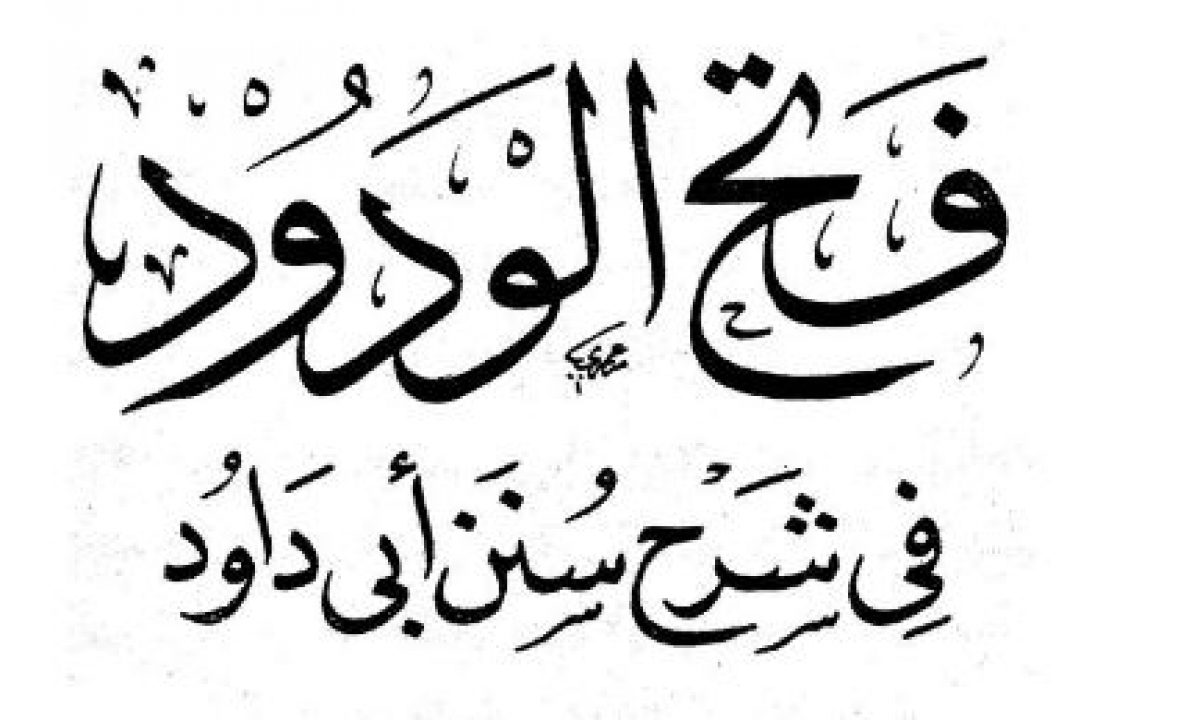 فَتحُ الْوَدُوْد
فِي شَرْح سُنَن أبى دَاوُد